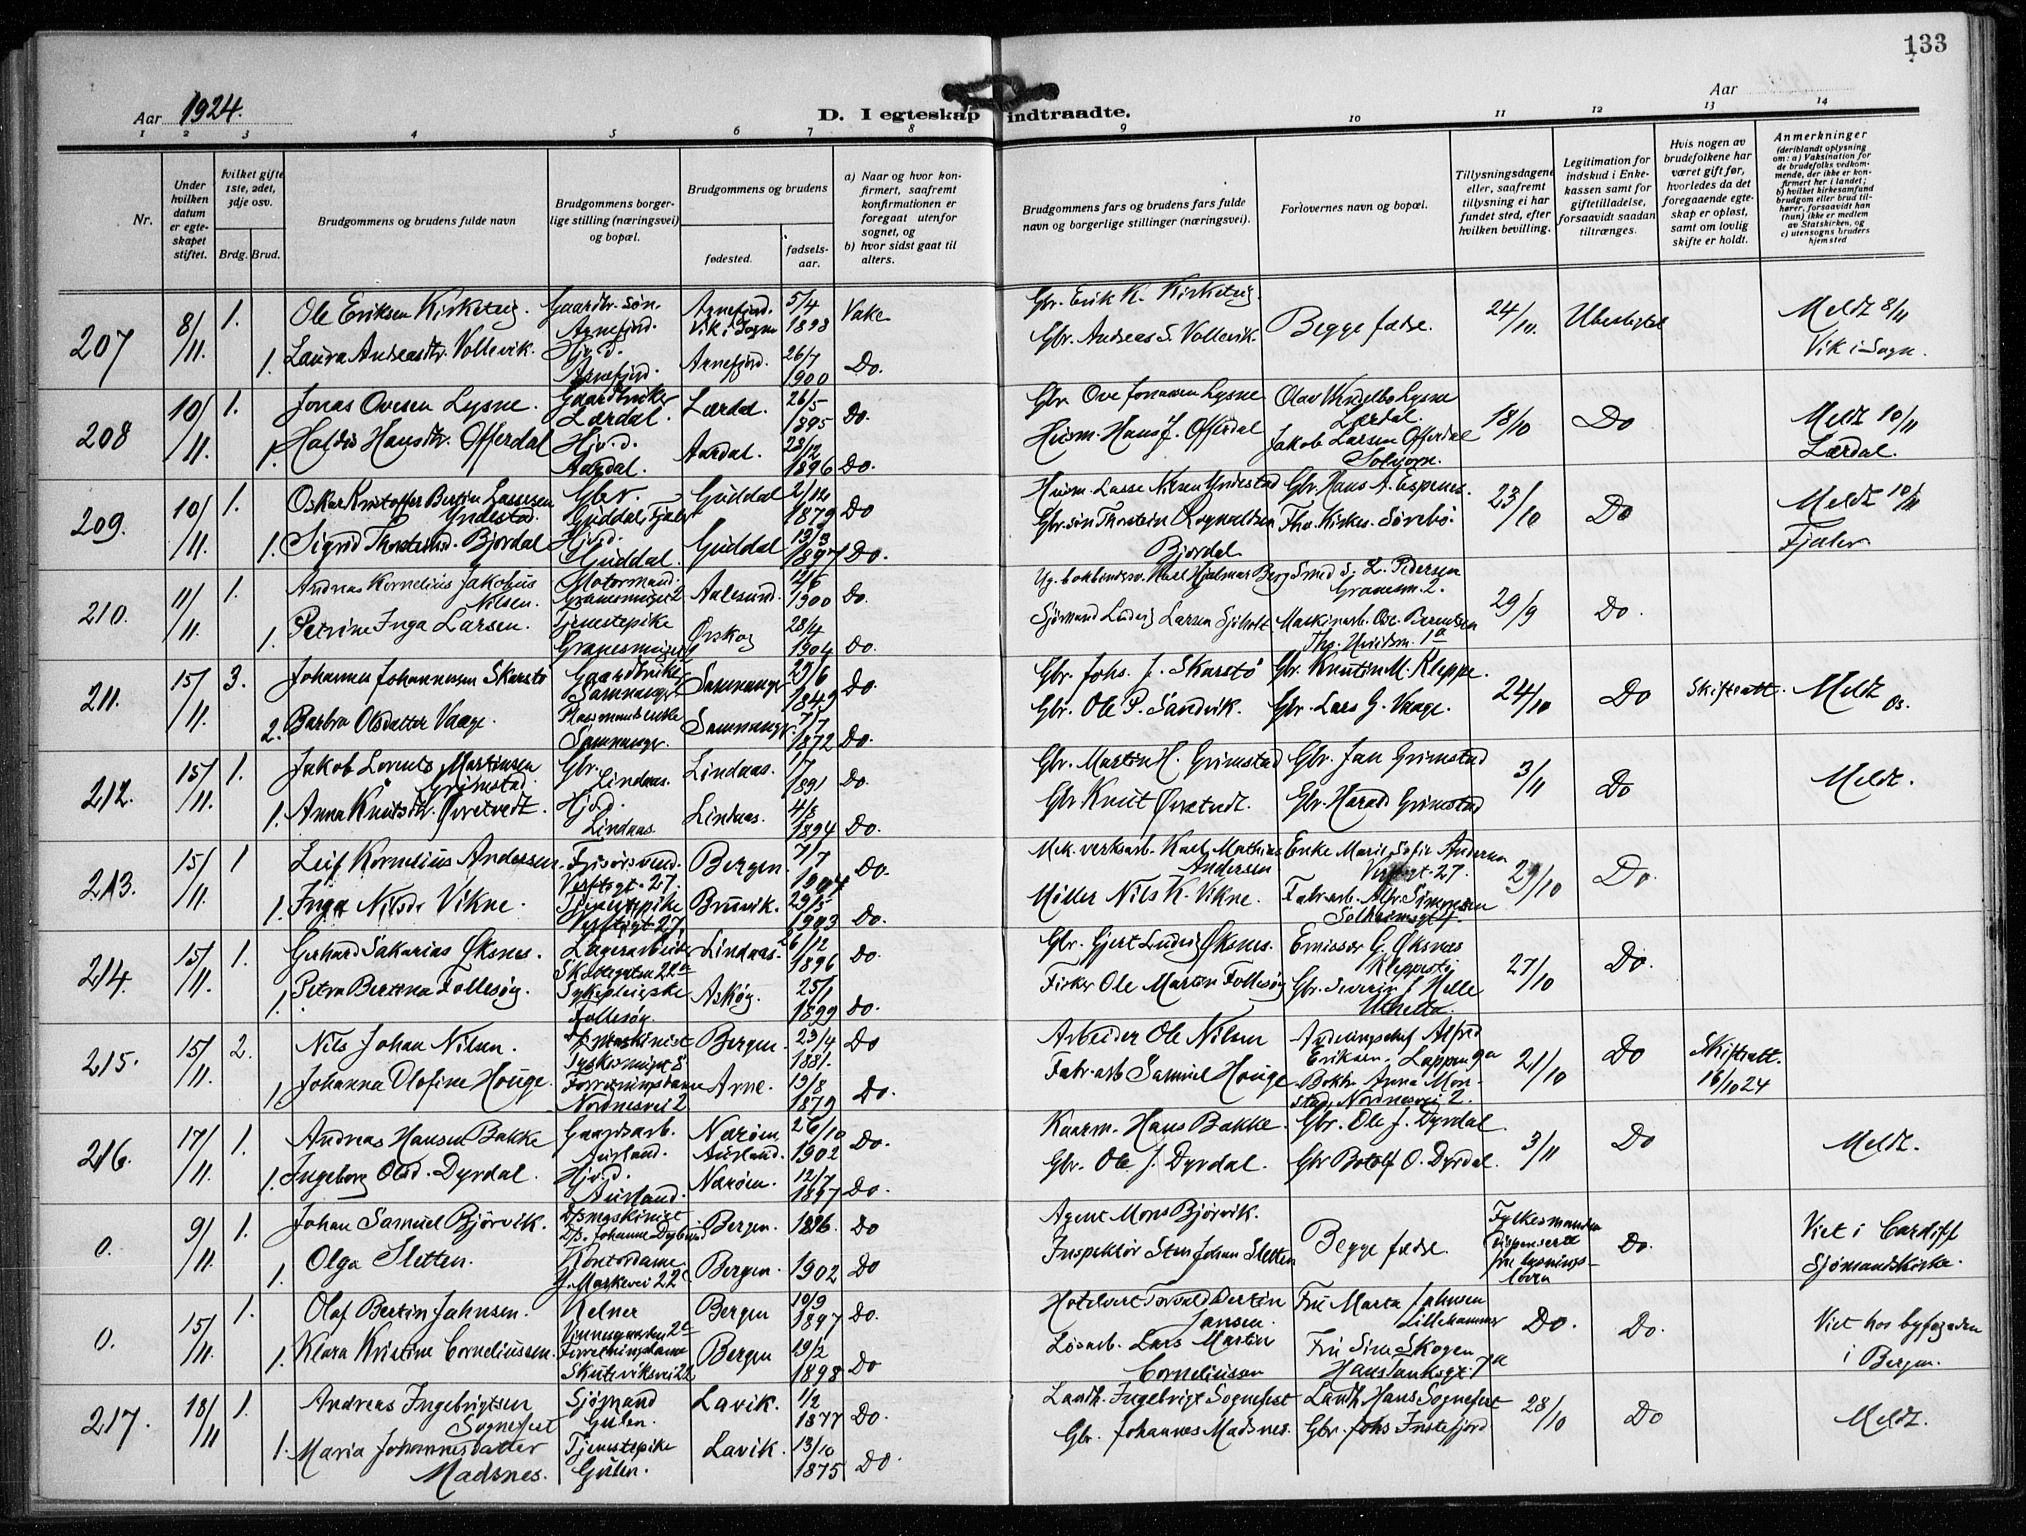 133
Aar 1924.
D. I egteskap indtraadte.
Aar
1 2 3 4 5 6 7 8 9 10 11 12 13 14
Nr.
Under hvilken datum er egteskapet stiftet.
hvilket gifte 1ste, 2det, 3dje osv.
Brdg. Brud.
Brudgommens og brudens fulde navn
Brudgommens borgerlige stilling (næringsvei) og bopæl.
Brudgommens og brudens
fødested.
fødselsaar.
a) Naar og hvor konfirmert, saafremt konfirmationen er foregaat utenfor sognet, og
b) hvor sidst gaat til alters.
Brudgommens fars og brudens fars fulde navn og borgerlige stillinger (næringsvei).
Forlovernes navn og bopæl.
Tillysningsdagene eller, saafremt tillysning ei har fundet sted, efter hvilken bevilling.
Legitimation for indskud i Enkekassen samt for giftetilladelse, forsaavidt saadan tiltrænges.
Hvis nogen av brudefolkene har været gift før, hvorledes da det foregaaende egteskap er opløst, samt om lovlig skifte er holdt.
Anmerkninger
(deriblandt oplysning om: a) Vaksination for de brudefolks vedkommende, der ikke er konfirmert her i landet; b) hvilket kirkesamfund brudgom eller brud tilhører, forsaavidt han (hun) ikke er medlem av Statskirken, og c) utensogns bruders hjemsted
207 8/11. 1. Ole Eriksen Kirketeig. Gaardbr. søn. Arnefjord. Arnefjord. Vik i Sogn 5/4 1898 Gbr. Erik K. Kirketeig. Begge fædre. 24/10. Ubesligtet Meldt 8/11
1. Laura Andreasdtr. Vollevik. Hjvd. Arnefjord. Arnefjord. 26/7 1900 Do. Gbr. Andreas S. Vollevik. Vik i Sogn.
208 10/11. 1. Jonas Ovesen Lysne. Gaardbruker Lærdal. Lærdal. 26/5 1895 Do. Gbr. Ove Jonassen Lysne Lysne Lærdal. 18/10 Do Meldt 10/11
1. Haldis Hansdtr. Offerdal Hjvd. Aardal. Aardal. 1896 Do. Husm. Hans J. Offerdal Jakob Larsen Offerdal Lærdal.
209. 10/11. 1. Oskar Kristoffer Bertin Lassesen Yndestad. Gbr. Guddal, Fjaler Guddal 2/12 1879 Do Husm. Lasse Nilsen Yndestad Gbr. Hans A. Espenes. 23/10 Do Meldt 10/11
1. Sigrid Thorsteinsd. Bjordal Hjvd. Guddal. Guddal 13/3 1897 Do. Gbr. søn Thorstein Rognaldsen Bjordal Kirkes. Sørebø. Fjaler
210. 11/11. 1. Andreas Kornelius Jakobus Nilsen. Motormand. Aalesund. 12/6 1900 Do. Hjalmar Berg Smed S. L. Pedersen 29/9 Do.
1. Petrine Inga Larsen. Tjenestepike Ørskog 28/4 1904 Do. Sjømand Ludvig Larsen Sjøholt Maskinarb.
211. 15/11. 3. Johannes Johannessen Skarstø Gaardbruker Samnanger Samnanger 29/6 1849 Do. Gbr. Johs. J. Skarstø Gbr. Knut M. Kleppe. 24/10 Do Skifteatt. Meldt Os.
2. Barbra Olsdatter Vaage. Samnanger. Samnanger. 7/7 1872 Do. Gbr. Ole P. Sandvik. Gbr. Lars G. Vaage.
212. 15/11. 1. Jakob Lorents Martinsen Grimstad. Gbr. Lindaas. Lindaas. 1891 Do. Gbr. Martin H. Grimstad Gbr. Jan Grimstad 3/11 Do Meldt.
1. Anna Knutsdtr. Øvretvedt. Hjvd. Lindaas Lindaas. 1894 Do. Gbr Knut Øvretvedt. Gbr. Harald Grimstad
213. 15/11. 1 Leif Kornelius Andersen. Frisørsvend. Verftsgt. 27. Bergen. 7/7 Do. Mek. verksarb. Karl Mathias Andersen Enke Marie Sofie Andersen Verftsgt. 27. 29/10 Do.
1. Inga Nilsdr Vikne. Tjenestepike Verftsgt 27. Bruvik. 29/5 1903 Do. Møller Nils K. Vikne. Fabr. arb. Alfr. Simonsen
214. 15/11. 1. Gerhard Sakarias Øksnes. Lagerarbeider Lindaas. 6/12 1896 Do. Gbr. Gjert Ludvig Øksnes. Emissær G. Øksnes Kleppestø 27/10 Do.
1. Petra Bertina Follesøy. Sykepleierske Follesøy. Askøy. 25/1 1899 Do. Fisker Ole Martin Follesøy Gbr. Severin J. Melle
215. 15/11. 2. Nils Johan Nilsen. Maskinist Bergen. 23/4 1881. Do Arbeider Ole Nilsen Avdelingschef Alfred Eriksen, Lappen 9a 21/10 Do Skifteatt. 16/10 24
1. Johanna Olofine Houge. Forretningsdame Nordnesvei 2 Arne. 19/8 1879 Do. Fabr. arb Samuel Houge Bokh. Anna Monstad, Nordnesvei 2.
216. 17/11. 1. Andreas Hansen Bakke Gaardsarb. Aurland. Nærøen, Aurland. 26/10 1902 Do. Kaarm. Hans Bakke. Gbr. Ole J. Dyrdal. 3/11 Do Meldt.
1. Ingeborg Olsd. Dyrdal. Hjvd. Aurland. Nærøen. 12/7 1897 Do. Gbr. Ole J. Dyrdal. Gbr Botolf O. Dyrdal.
0. 9/11. 1. Johan Samuel Bjørvik. D/s maskinist Bergen. 1896. Do Agent Mons Bjørvik. Begge fædre. Fylkesmanden dispensert fra lysnings- Do. Viet i Cardiff
1. Olga Sletten. Kontordame J. Markevei 22c Bergen. 1902 Do Inspektør Sten Johan Sletten Sjømandskirke.
0. 15/11. 1. Olaf Bertin Jahnsen. Kelner Bergen 10/9 1897 Do. Bertin Jansen. Fru Marta Jahnsen Lillehammer Do. Do. Viet hos byfogeden
1. Klara Kristine Corneliussen. Forretningsdame Skuteviksvei 22 Bergen 19/2 1898 Do Løsarb. Lars Martin Corneliussen Fru Sina Skogen Hans Tanksgt. 7a i Bergen.
217. 18/11 1. Andreas Ingebrigtsen Sognefest Sjømand Gulen. Lavik. 1/2 1877 Do. Landh. Ingebrigt Sognefest Landh. Hans Sognefest 28/10 Do Meldt.
1. Maria Johannesdatter Madsnes. Tjenestepike Gulen. Lavik. 13/10 1875 Do. Gbr. Johannes Madsnes. Gbr. Johs Instefjord